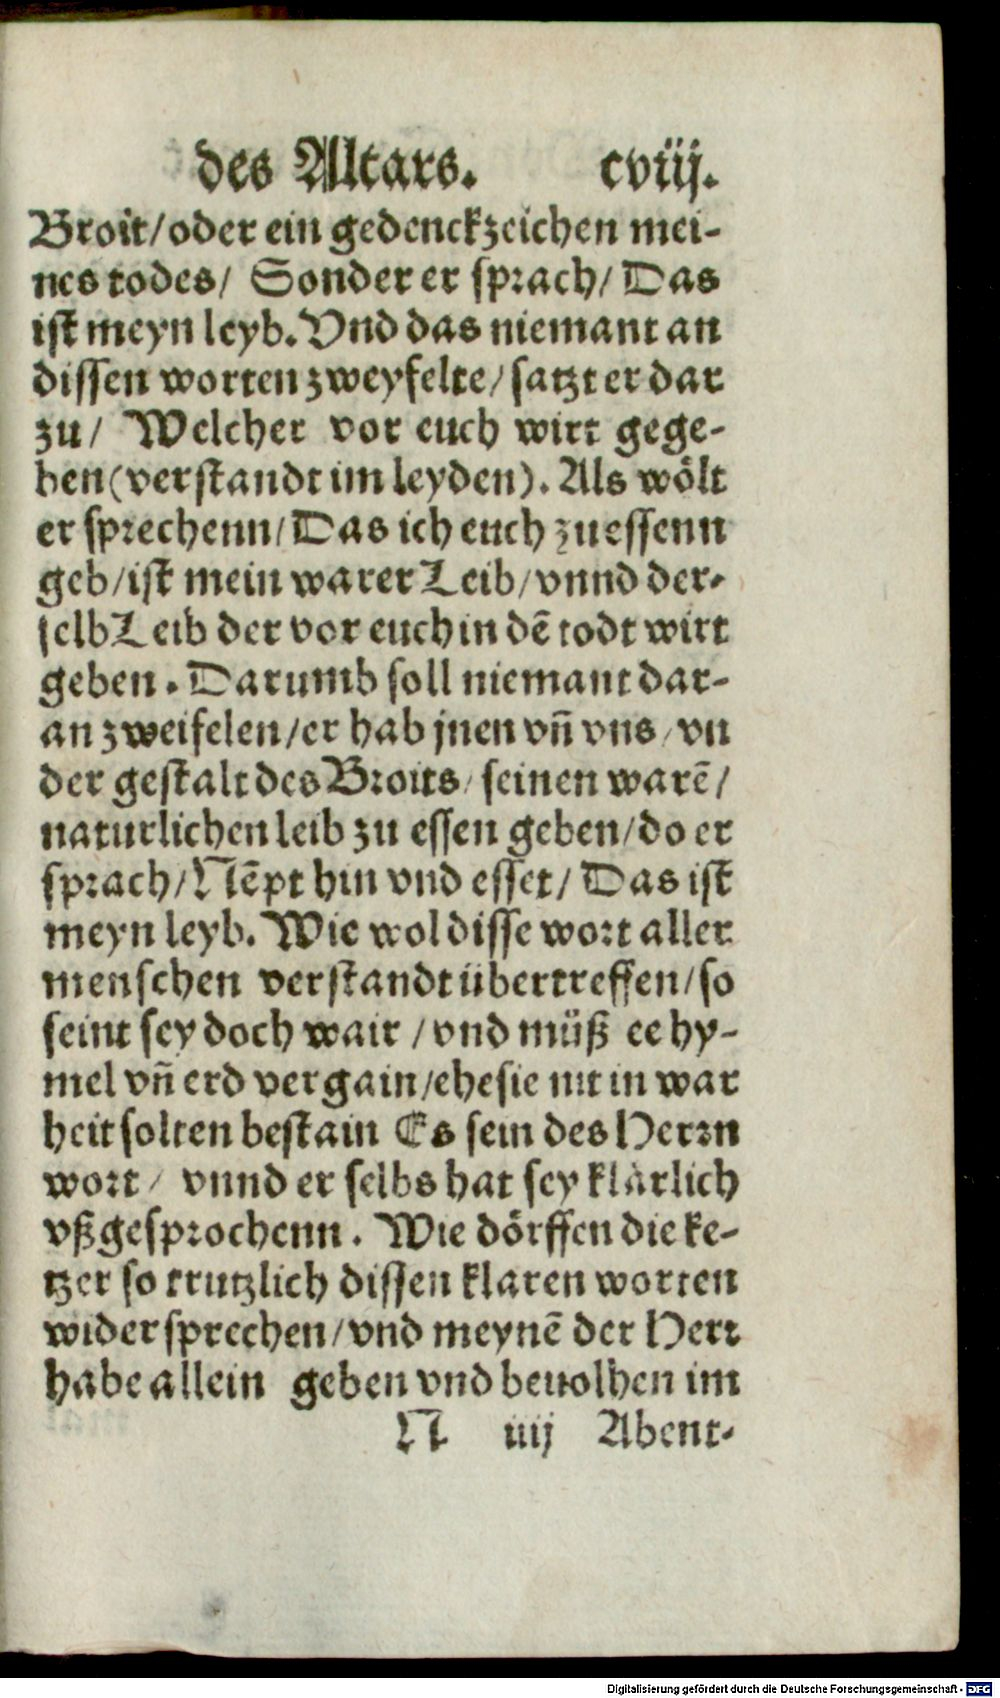 des Altars. cviij.
Broit/oder ein gedenckzeichen mei-
nes todes/ Sonder er sprach/ Das
ist meyn leyb. Vnd das niemant an
dissen worten zweyfelte/satzt er dar
zu/ Welcher vor euch wirt gege-
ben(verstandt im leyden). Als wölt
er sprechenn/Das ich euch zu essenn
geb/ist mein warer Leib/vnnd der-
selb Leib der vor euch in dē todt wirt
geben. Darumb soll niemant dar-
an zweifelen/er hab jnen vñ vns/vn
der gestalt des Broits/seinen warē/
naturlichen leib zu essen geben/do er
sprach/Nēpt hin vnd esset/Das ist
meyn leyb. Wie wol disse wort aller
menschen verstandt übertreffen/so
seint sey doch wair/vnd müß ee hy-
mel vñ erd vergain/ehe sie nit in war
heit solten bestain Es sein des Herrn
wort/ vnnd er selbs hat sey klärlich
vßgesprochenn. Wie dörffen die ke-
tzer so trutzlich dissen klaren worten
widersprechen/vnd meynē der Herr
habe allein geben vnd beuolhen im
N iiij Abent-
Digitalisierung gefördert durch die Deutsche Forschungsgemeinschaft - DFG